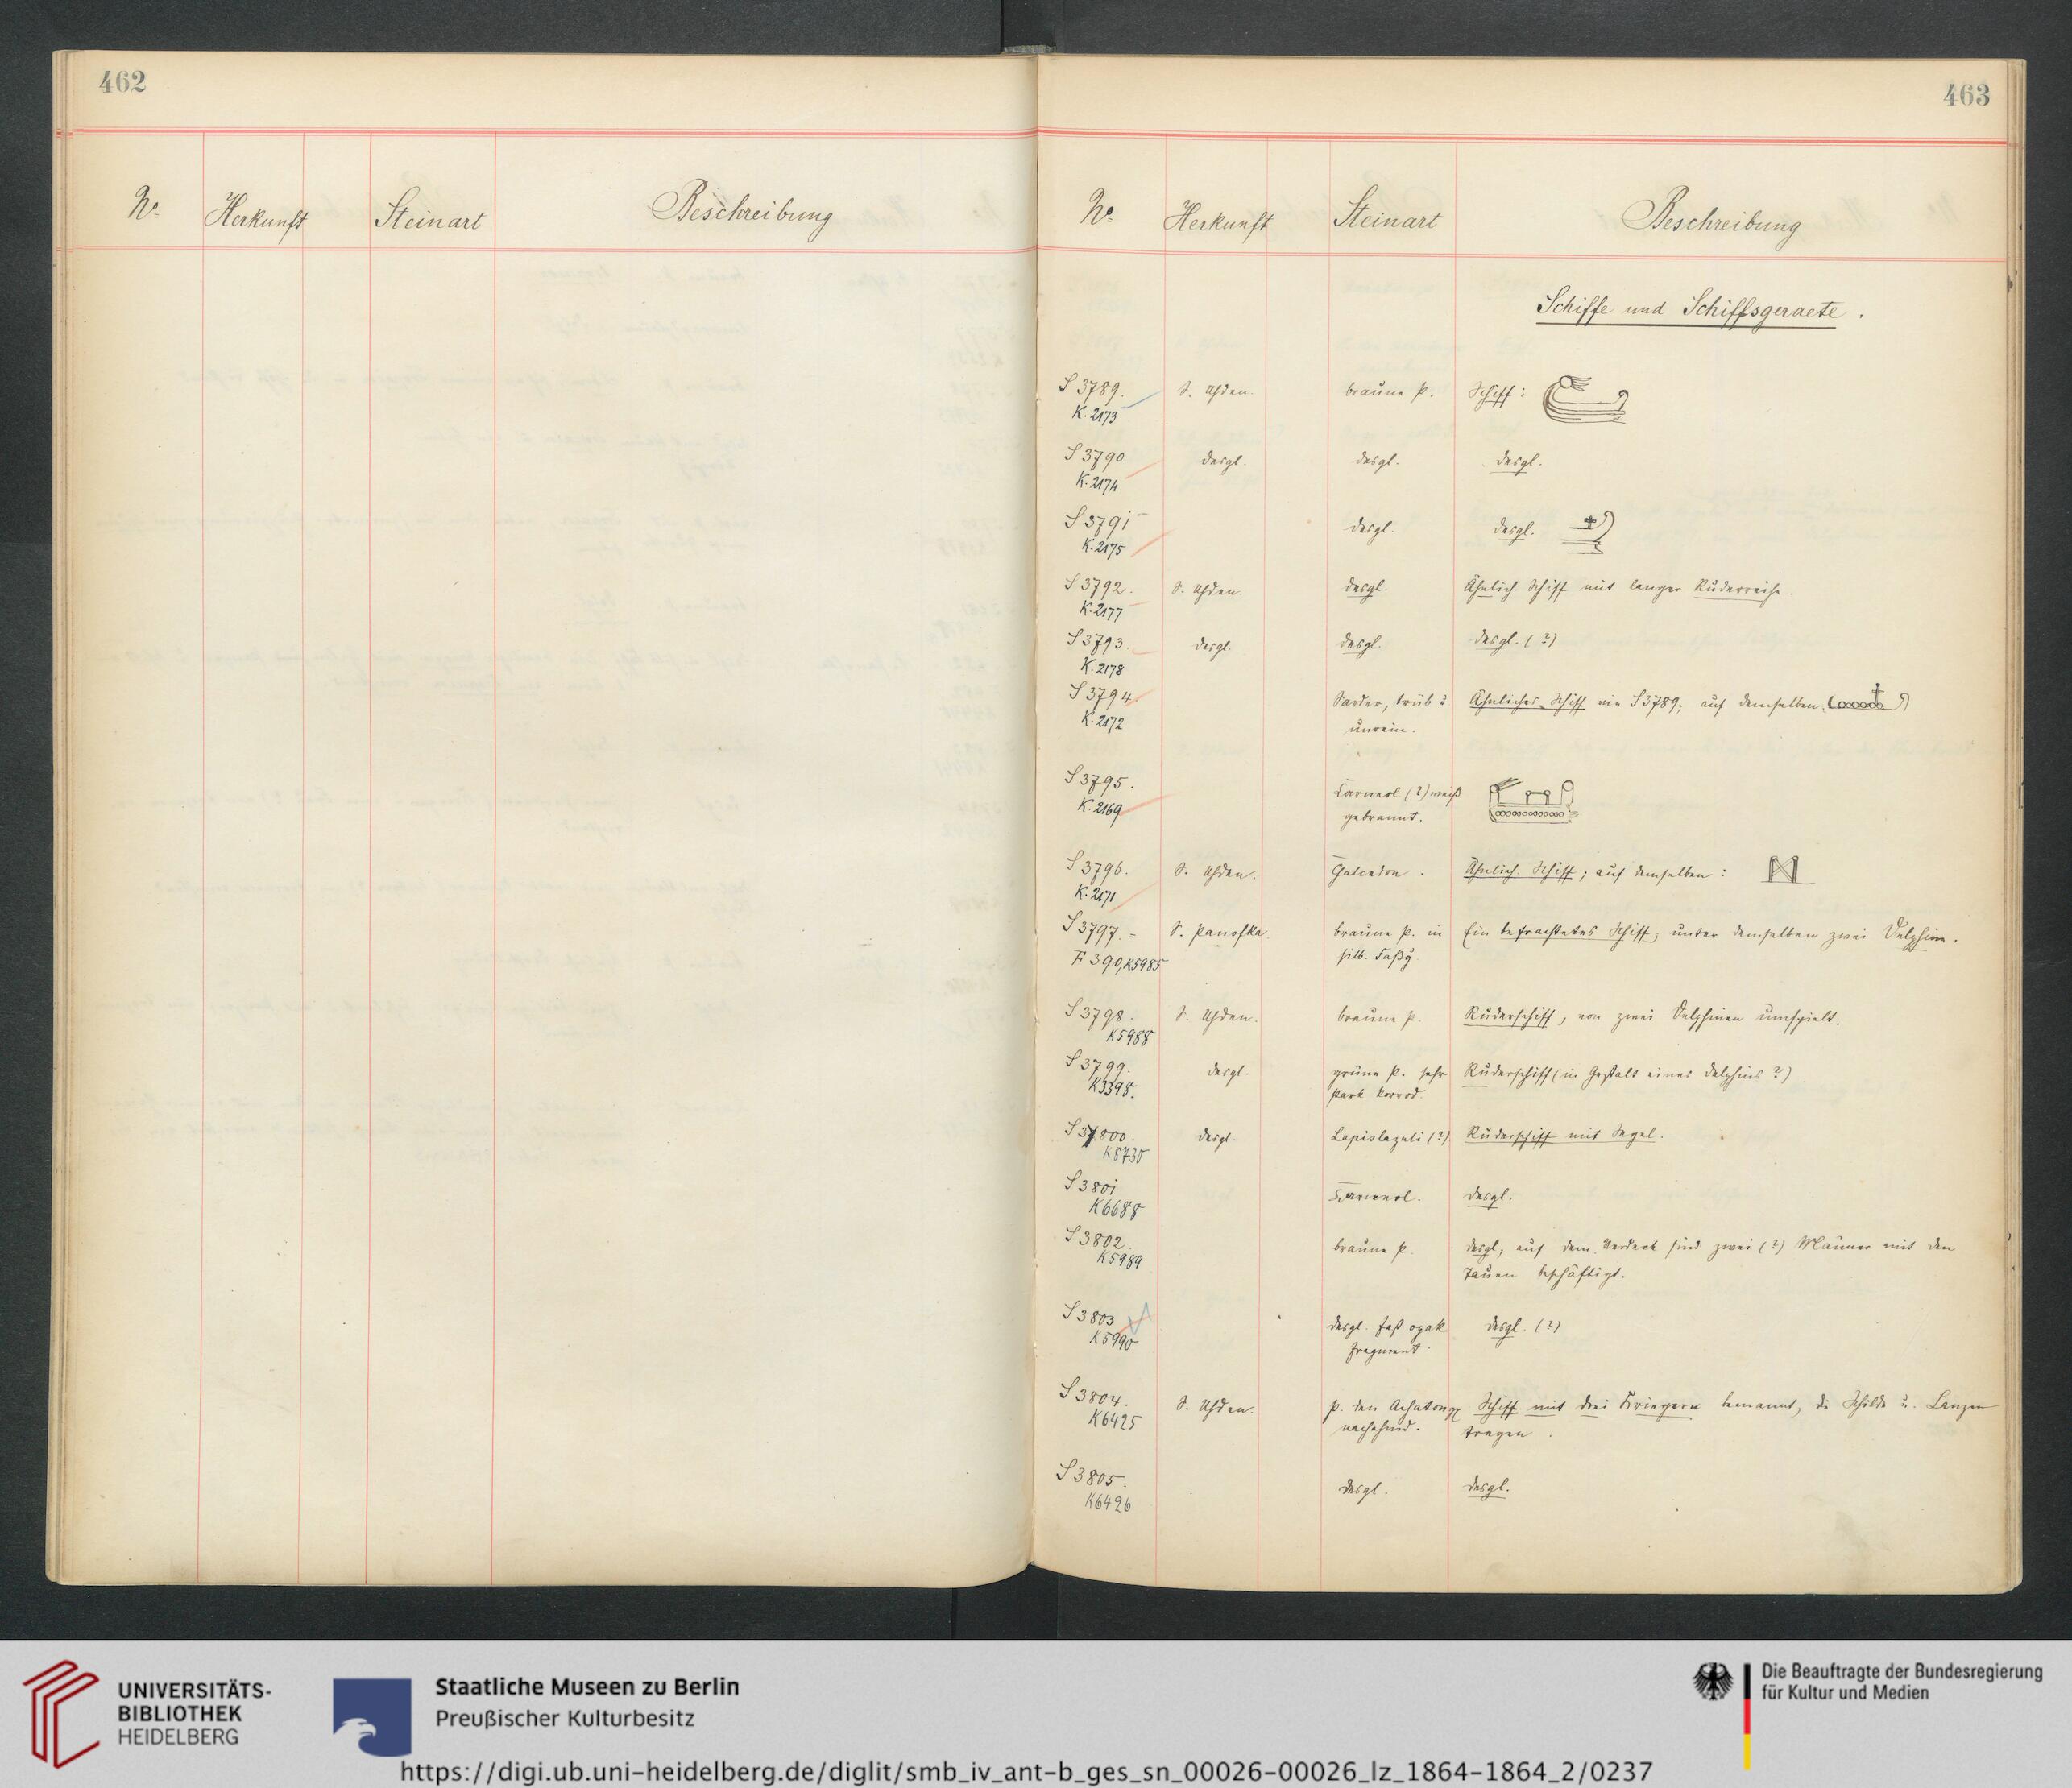 462
463
No Herkunft Steinart Beschreibung
No Herkunft Steinart Beschreibung
Schiffe und Schiffsgeraete.
S 3789. S. Uhden. braune P. Schiff:
K. 2173
S 3790 desgl. desgl. desgl.
K. 2174
S 3791 desgl. desgl.
K. 2175
S 3792. S. Uhden. desgl. Ähnlich Schiff mit langer Ruderreihe.
K. 2177
S 3793. desgl. desgl. desgl. (?)
K. 2178
S 3794 Sarder, trüb u. Ähnliches Schiff wie S 3789; auf demselben
K. 2172 unrein.
S 3795. Carneol (?) weiß
K. 2169 gebrannt.
S 3796. S. Uhden. Calcedon. Ähnlich. Schiff; auf demselben:
K. 2171
S 3797. = S. Panofka. braune P. in Ein befrachtetes Schiff, unter demselben zwei Delphine.
F 390, K5985 silb. Faßg.
S 3798. S. Uhden. braune P. Ruderschiff, von zwei Delphinen umspielt.
K5988
S 3799. desgl. grüne P. sehr Ruderschiff (in Gestalt eines Delphins?)
K3398. stark korrod.
S 3800. desgl. Lapislazuli (?) Ruderschiff mit Segel.
K8730
S 3801 Carneol. desgl.
K6688
S 3802. braune P. desgl; auf dem Verdeck sind zwei (?) Männer mit den
K5989 Tauen beschäftigt.
S 3803 desgl. fast opak desgl. (?)
K5990 Fragment.
S 3804. S. Uhden. P. den Achatonyx Schiff mit drei Kriegern bemannt, die Schilde u. Lanzen
K6425 nachahmd. tragen.
S 3805. desgl. desgl.
K6426
UNIVERSITÄTS-
BIBLIOTHEK
HEIDELBERG
Staatliche Museen zu Berlin
Preußischer Kulturbesitz
Die Beauftragte der Bundesregierung
für Kultur und Medien
https://digi.ub.uni-heidelberg.de/diglit/smb_iv_ant-b_ges_sn_00026-00026_lz_1864-1864_2/0237